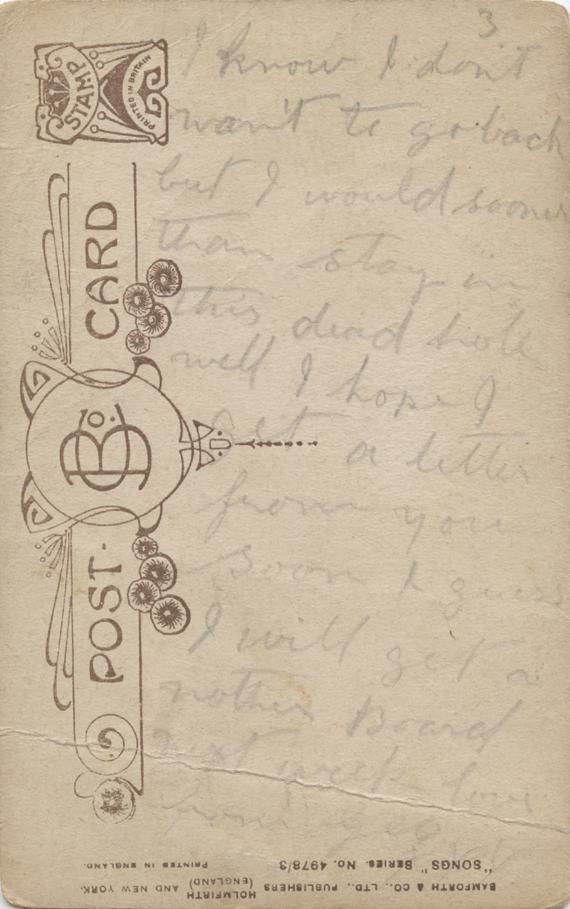 3
I know I don't
want to go back
but I would sooner
than stay in
this dead hole
well I hope I
get a letter
from you
soon I guess
I will get a
nother Board
next week love
from
STAMP
PRINTED IN BRITAIN
POST-CARD
B & Co.
BAMFORTH & CO., LTD., PUBLISHERS HOLMFIRTH (ENGLAND) AND NEW YORK.
"SONGS" SERIES. No. 4978/3 PRINTED IN ENGLAND.